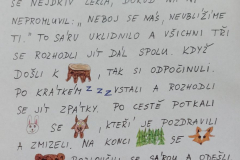 SE NEJDŘÍV LEKLA, DOKUD NA NI
NEPROMLUVIL: „NEBOJ SE NÁS, NEUBLÍŽÍME
TI." TO SÁRU UKLIDNILO A VŠICHNI TŘI
SE ROZHODLI JÍT DÁL SPOLU. KDYŽ
DOŠLI K , TAK SI ODPOČINULI.
PO KRÁTKÉM ZZZ VSTALI A ROZHODLI
SE JÍT ZPÁTKY. PO CESTĚ POTKALI
SE , KTEŘÍ JE POZDRAVILI
A ZMIZELI. NA KONCI SE
ROZLOUČILI SE SÁROU A ODEŠLI